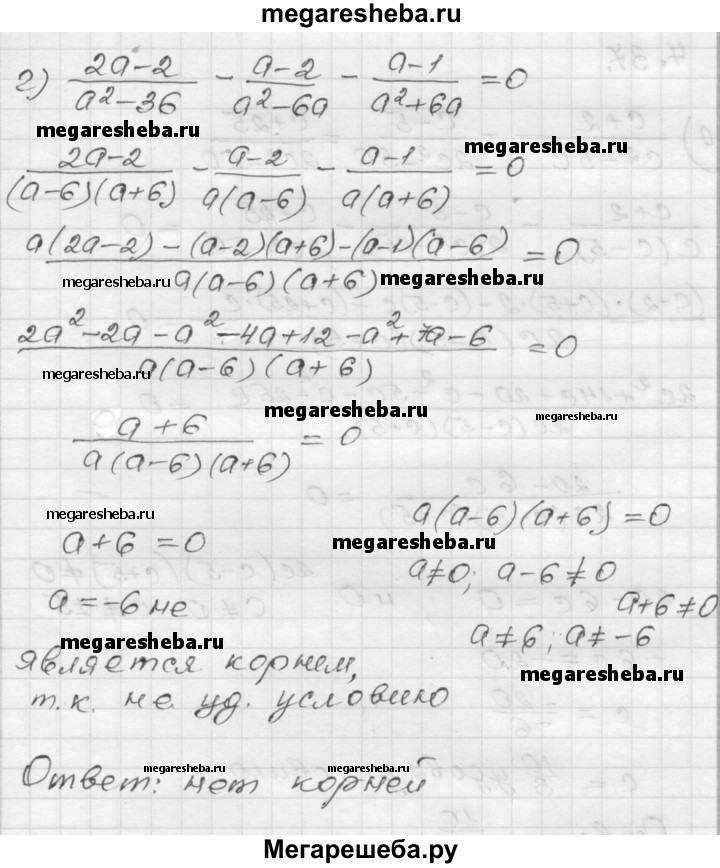 megaresheba.ru
г) (2a-2)/(a²-36) - (a-2)/(a²-6a) - (a-1)/(a²+6a) = 0
megaresheba.ru
megaresheba.ru
(2a-2)/((a-6)(a+6)) - (a-2)/(a(a-6)) - (a-1)/(a(a+6)) = 0
(a(2a-2)-(a-2)(a+6)-(a-1)(a-6))/(a(a-6)(a+6)) = 0
megaresheba.ru
megaresheba.ru
(2a²-2a-a²-4a+12-a²+7a-6)/(a(a-6)(a+6)) = 0
megaresheba.ru
megaresheba.ru
megaresheba.ru
(a+6)/(a(a-6)(a+6)) = 0
megaresheba.ru
a(a-6)(a+6)=0
a+6=0
megaresheba.ru
a≠0; a-6≠0
a=-6 не
a+6≠0
megaresheba.ru
a≠6; a≠-6
является корнем,
megaresheba.ru
т.к. не уд. условию
megaresheba.ru
megaresheba.ru
Ответ: нет корней
Мегарешеба.ру